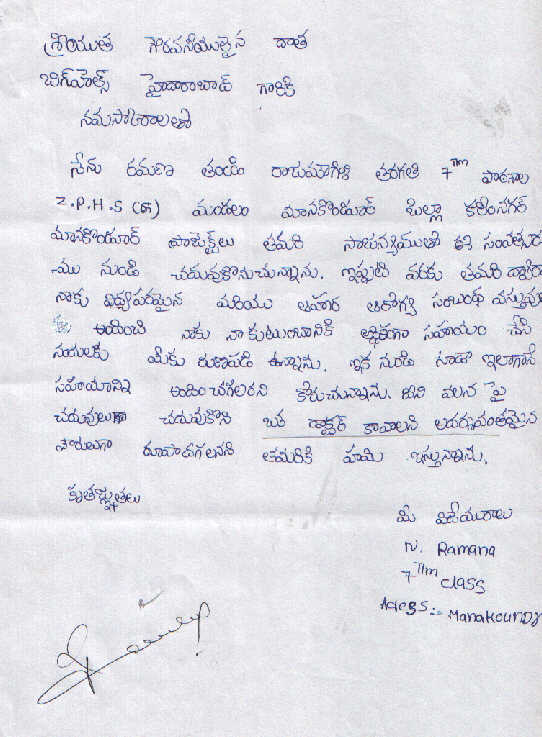 శ్రీయుత గౌరవనీయులైన దాత
బిగ్‌హెల్ప్ హైదరాబాద్ గారికి
నమస్కారాలతో
నేను రమణ తండ్రి రాజమౌళి తరగతి 7th పాఠశాల
Z.P.H.S (బా) మండలం మానకొండూర్ జిల్లా కరీంనగర్
మానకొండూర్ ప్రాజెక్ట్‌లు తమరి సౌజన్యముతో ఈ సంవత్సర
-ము నుండి చదువుకొనుచున్నాను. ఇప్పటి వరకు తమరి ద్వారా
నాకు విద్యపరమైన మరియు ఆహార ఆరోగ్య సంబంధ వస్తువు
లు అందించి నాకు నా కుటుంబానికి ఆర్థికంగా సహాయం చేసి
నందులకు మీకు రుణపడి ఉన్నాను. ఇక నుండి కూడా ఇలాగానే
సహయాన్ని అందించగలరని కోరుచున్నాను. దీని వలన పై
చదువులుగా చదువుకొని ఒక డాక్టర్ కావాలని ఆదర్శవంతమైన
పౌరులుగా రూపొందగలనని తమరికి హామి ఇస్తున్నాను.
కృతజ్ఞతలు
మీ విదేయురాలు
N. Ramana
7th class
Adess:- Manakoundr